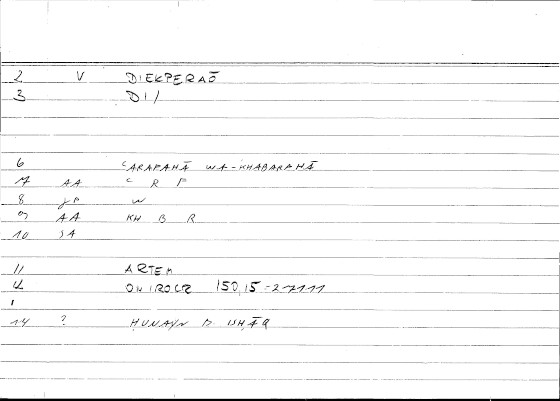 2 V DIEKPERAŌ
3 DI/
6 ʿARAFAHĀ WA-KHABARAHĀ
7 AA ʿ R F
8 W
9 AA KH B R
10 SA
11 ARTEM
12 ONIROCR 150,15
14 ? HUNAYN B. ISHĀQ